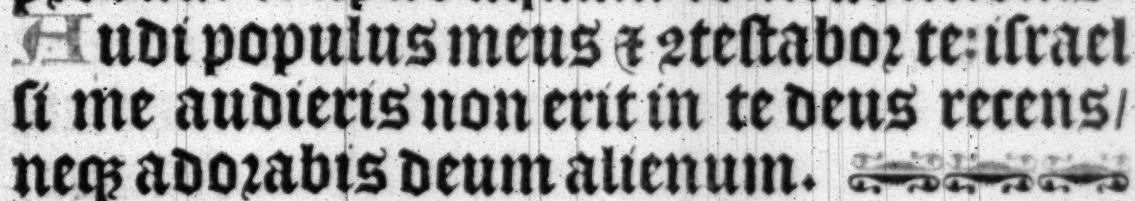 Audi populus meus ⁊ ꝯtestabor te: israel
si me audieris non erit in te deus recens/
neqꝫ adorabis deum alienum.